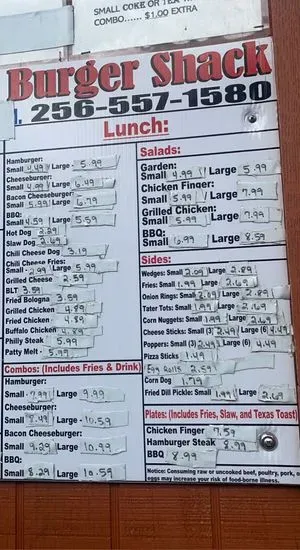 SMALL COKE OR TEA
COMBO...... $1.00 EXTRA
Burger Shack
256-557-1580
Lunch:
Hamburger:
Small 4.49 Large - 5.99
Cheeseburger:
Small 4.99 Large - 6.49
Bacon Cheeseburger:
Small 5.99 Large - 6.79
BBQ:
Small 4.59 Large - 5.59
Hot Dog 2.29
Slaw Dog 2.69
Chili Cheese Dog 3.19
Chili Cheese Fries:
Small - 2.99 Large 5.99
Grilled Cheese 2.59
BLT 3.59
Fried Bologna 3.59
Grilled Chicken 4.89
Fried Chicken 4.89
Buffalo Chicken 4.89
Philly Steak 5.99
Patty Melt - 5.99
Combos: (Includes Fries & Drink)
Hamburger:
Small - 7.99 Large 9.99
Cheeseburger:
Small - 8.49 Large - 10.59
Bacon Cheeseburger:
Small 9.29 Large 10.99
BBQ:
Small 8.29 Large 10.59
Salads:
Garden:
Small 4.99 Large 5.99
Chicken Finger:
Small 5.99 Large 7.99
Grilled Chicken:
Small 5.99 Large 7.99
BBQ:
Small 6.99 Large 8.59
Sides:
Wedges: Small 2.09 Large 2.89
Fries: Small 1.99 Large 2.69
Onion Rings: Small 2.09 Large 2.89
Tater Tots: Small 1.99 Large 2.69
Corn Nuggets: Small 1.99 Large 2.69
Cheese Sticks: Small (3) 2.49 Large (6) 4.49
Poppers: Small (3) 2.49 Large (6) 4.49
Pizza Sticks 1.49
Egg Rolls 2.59
Corn Dog 1.79
Fried Dill Pickle: Small 1.99 Large 2.69
Plates: (Includes Fries, Slaw, and Texas Toast)
Chicken Finger 7.59
Hamburger Steak 8.99
BBQ 8.99
Notice: Consuming raw or uncooked beef, poultry, pork, or
eggs may increase your risk of food-borne illness.